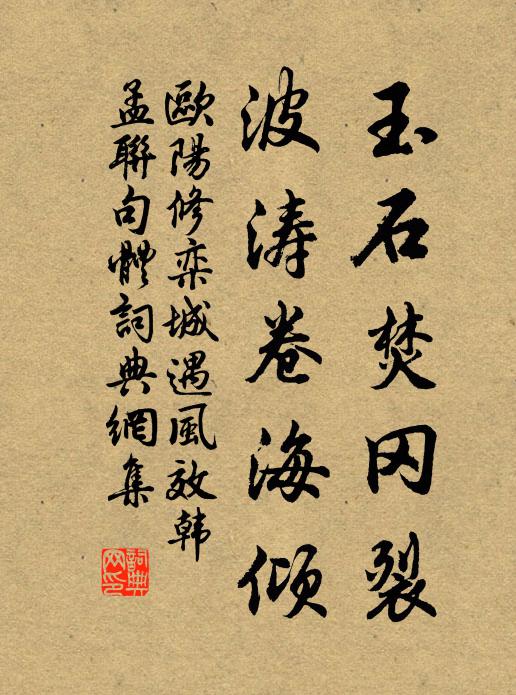 玉石焚冈裂
波涛卷海倾
歐陽修栾城遇風效韩
孟聯句體詞典網集
詞典网印